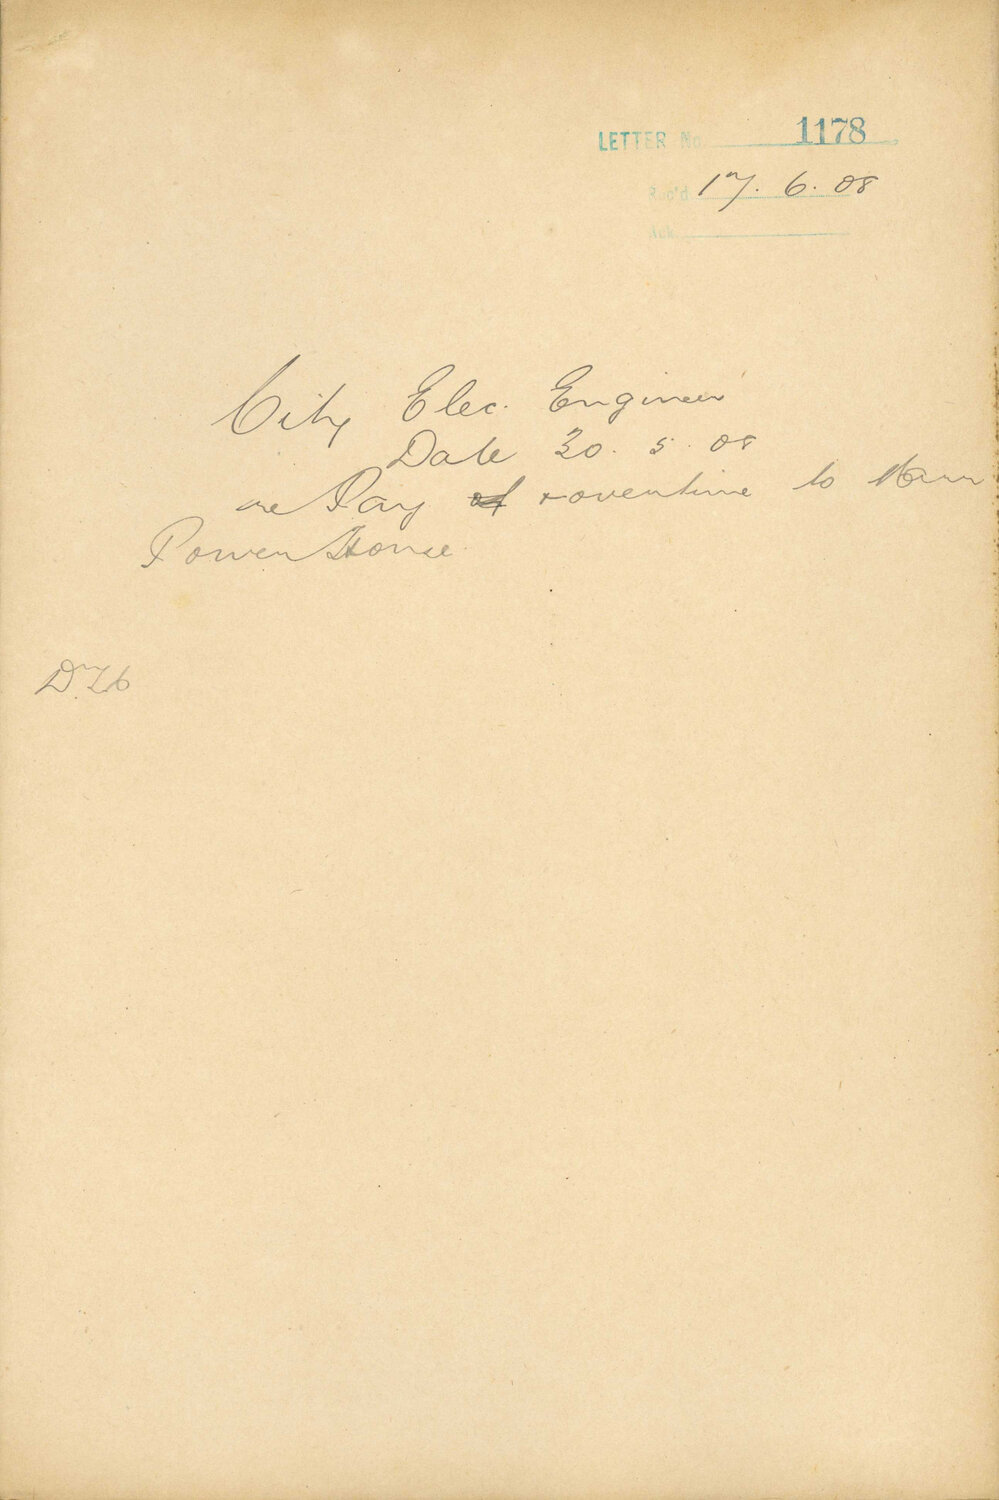 LETTER No. 1178
Rec'd 17. 6. 08
Ack.
City Elec. Engineer
Date 30. 5. 08
re Pay of + overtime to
Power House